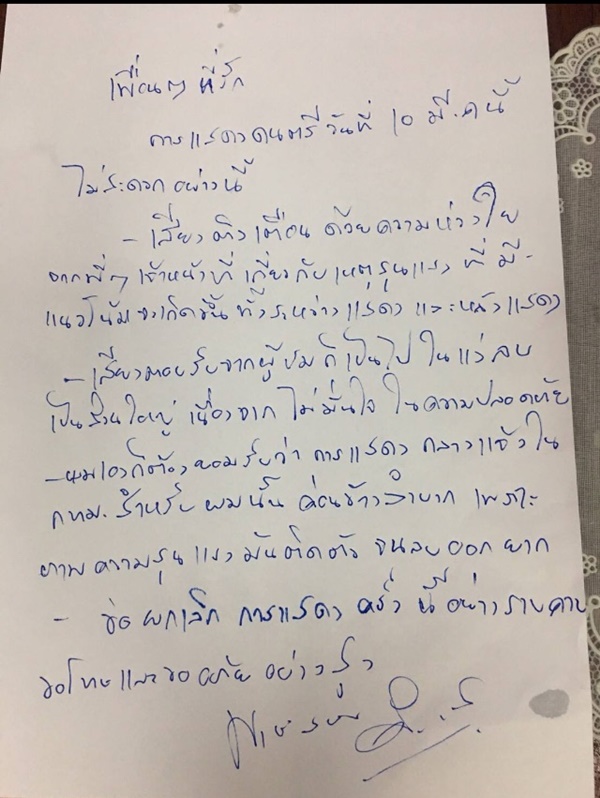 เพื่อนๆ ที่รัก
การแสดงดนตรีวันที่ 10 มี.ค นี้
ไม่สะดวกอย่างนี้
- เสียงติงเตือน ด้วยความห่วงใย
จากพี่ๆ เจ้าหน้าที่ เกี่ยวกับเหตุรุนแรง ที่ มี-
แนวโน้มจะเกิดขึ้น ทั้งระหว่างแสดง และหลังแสดง
- เสียงตอบรับจากผู้ชมก็เป็นไป ในแง่ลบ
เป็นส่วนใหญ่ เนื่องจาก ไม่มั่นใจ ในความปลอดภัย
- ผมเองก็ต้องยอมรับว่า การแสดง กลางแจ้งใน
กทม. สำหรับ ผมนั้น ค่อนข้างลำบาก เพราะ
ภาพความรุนแรง มันติดตัว จนลบออกยาก
- ขอ ยกเลิก การแสดง ครั้ง นี้ อย่างราบคาบ
ขอโทษและขออภัย อย่างสูง